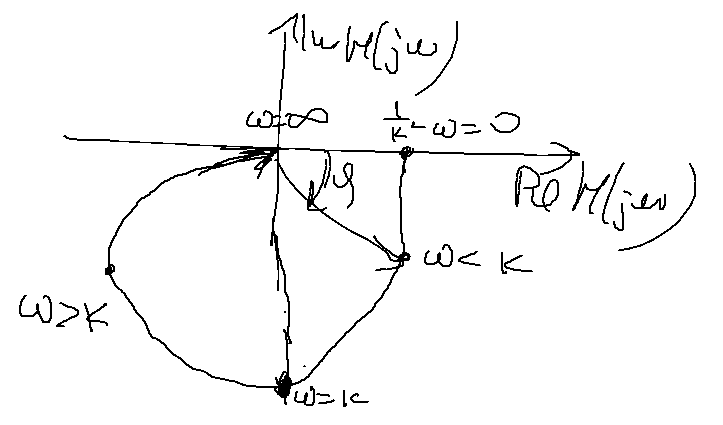 Im H(jω)
ω=∞
1/k² ω=0
φ
Re H(jω)
ω< k
ω>k
ω=k